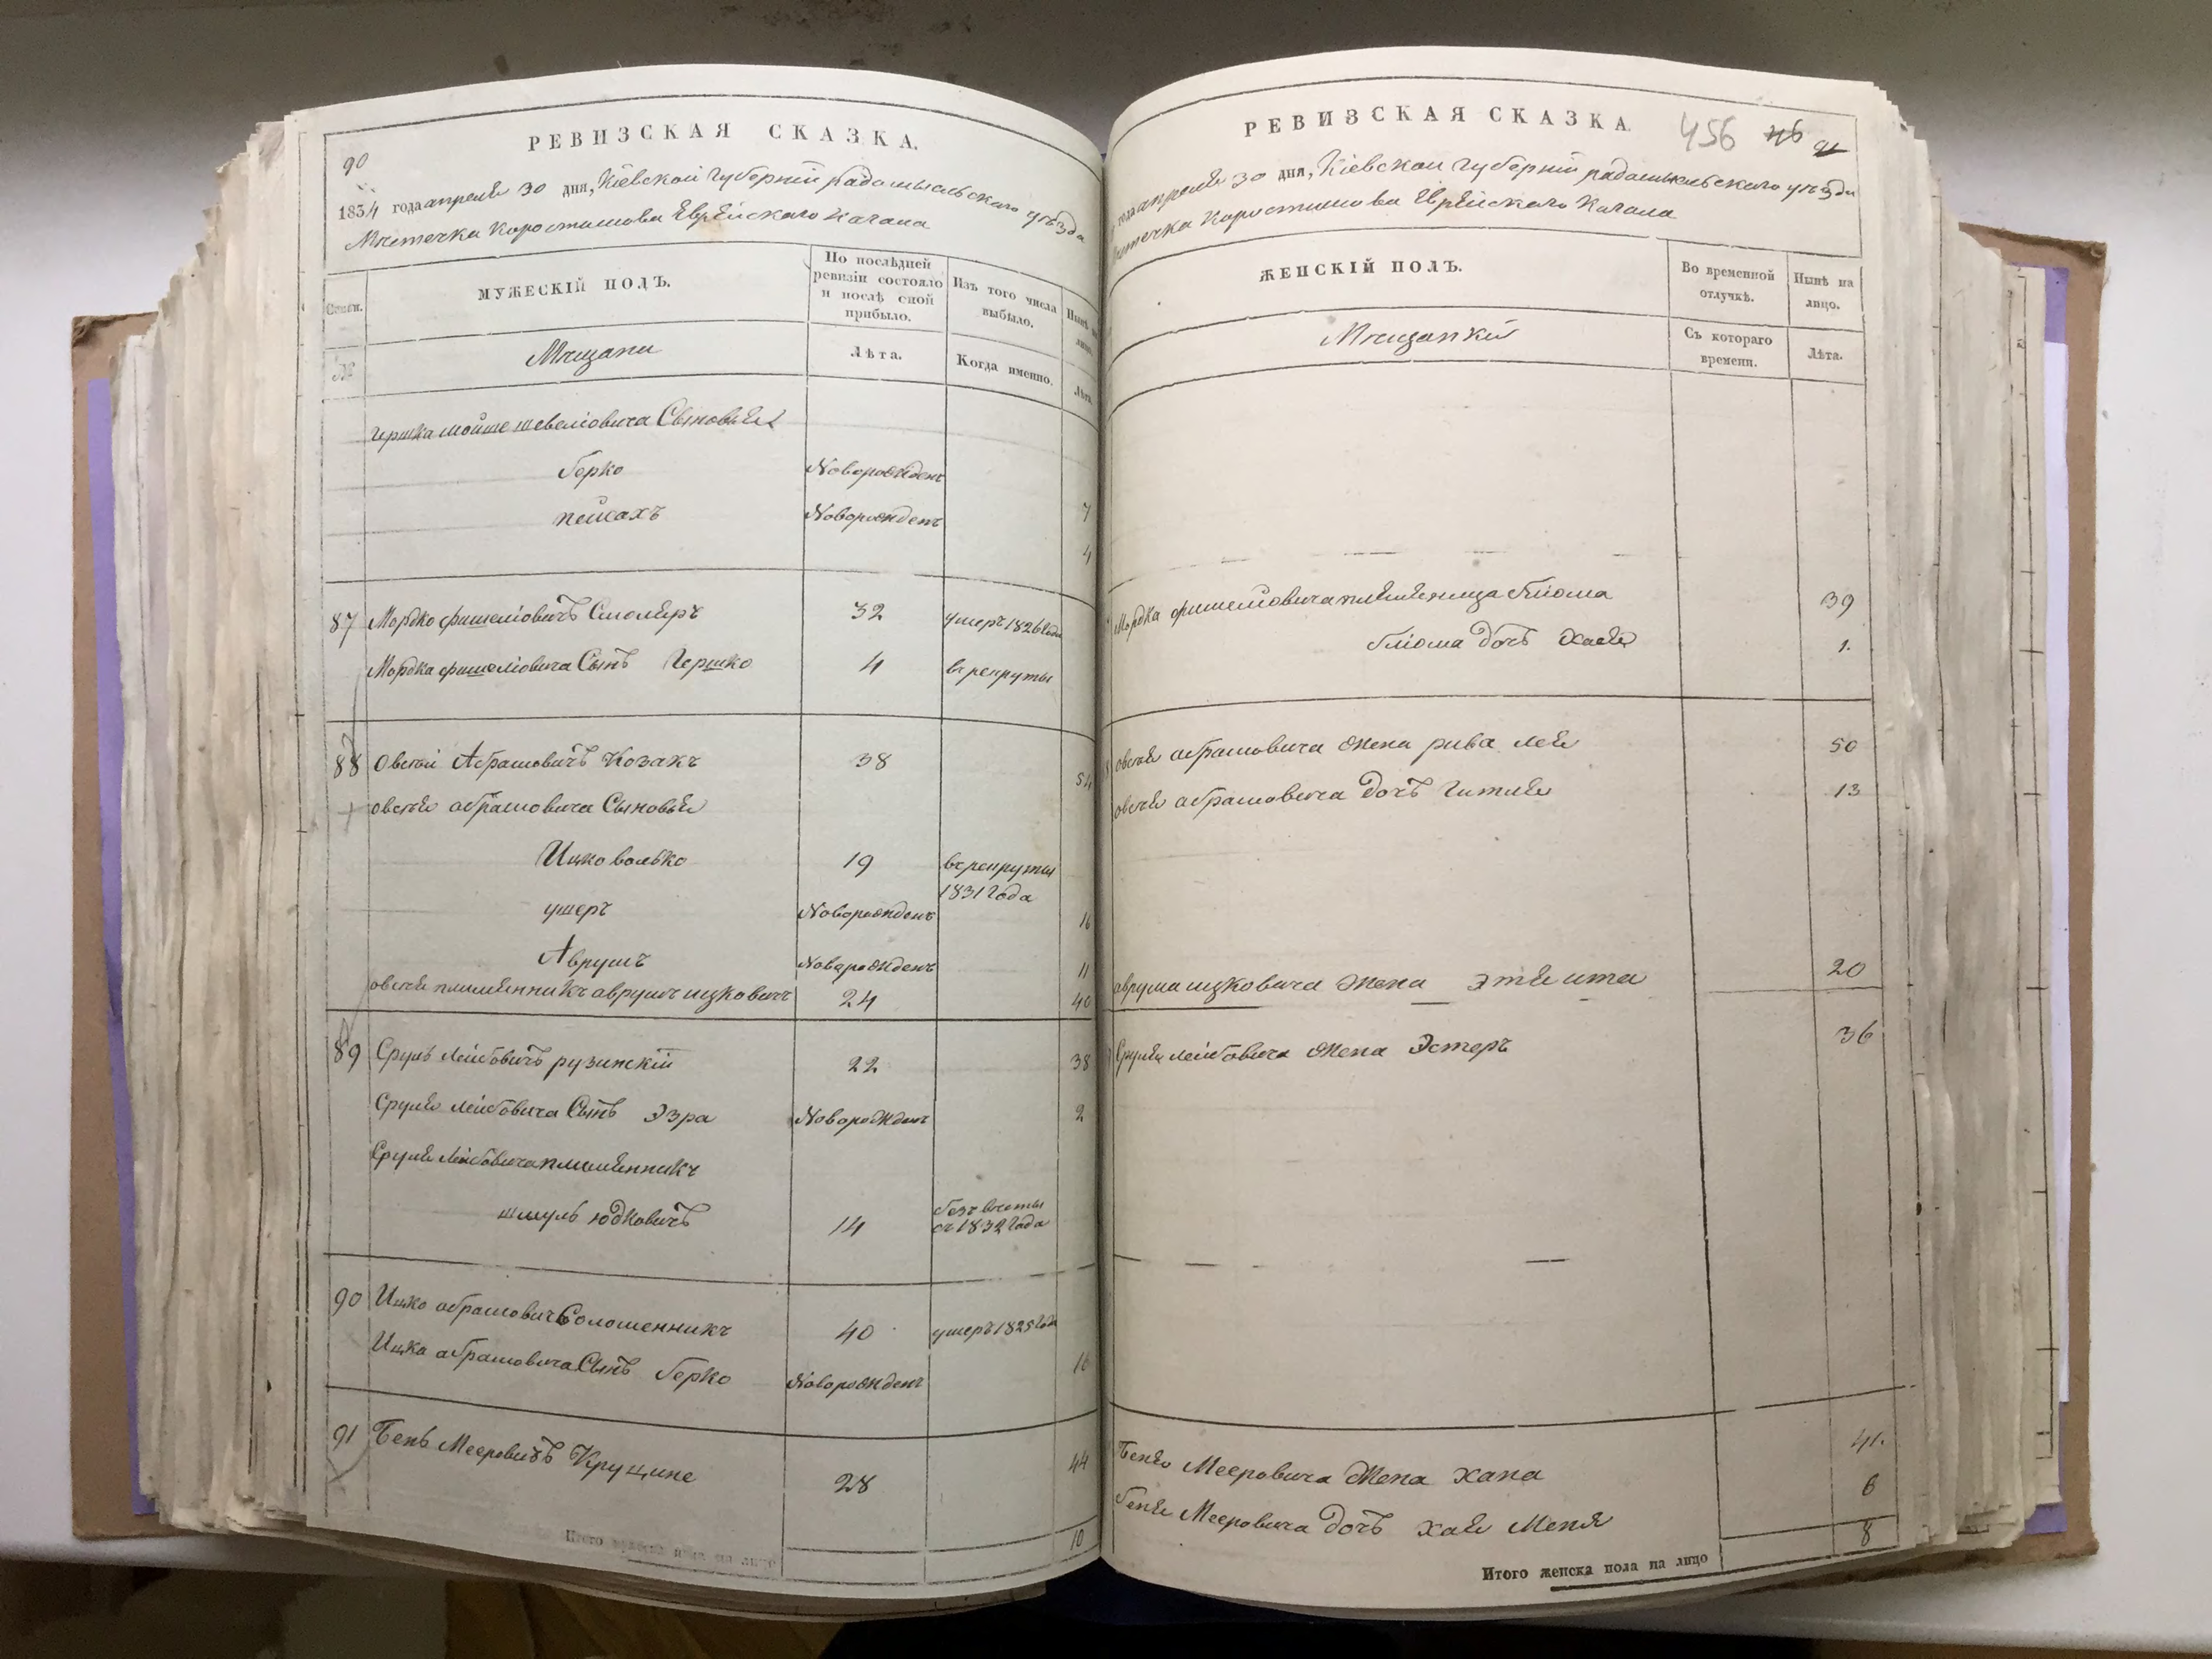 РЕВИЗСКАЯ СКАЗКА.
90
1834 года апреля 30 дня, Кіевской губерніи радомысльскаго уѣзда
Мѣстечка Коростишова Еврейскаго Кагала
Семьи.
МУЖЕСКІЙ ПОЛЪ.
По послѣдней ревизіи состояло и послѣ оной прибыло.
Изъ того числа выбыло.
Нынѣ на лицо.
№
Мѣщани
Лѣта.
Когда именно.
Лѣта.
Гершка мойше шевеліовича Сыновья
берко Новорожденъ 7
пейсахъ Новорожденъ 4
87 Мордко фишеліовичъ Смоляръ 32 умеръ 1826 года
Мордка фишеліовича Сынъ Гершко 4 въ рекруты
88 Овсѣй Абрамовичъ Козакъ 38 54
овсѣя абрамовича Сыновья
Ицко волько 19 въ рекруты
1831 года
ушеръ Новорожденъ 16
Аврумъ Новорожденъ 11
овсѣя племянникъ аврумъ ицковичъ 24 40
89 Сруль лейбовичъ рузинскій 22 38
Сруля лейбовича Сынъ Эзра Новорожденъ 2
Сруля лейбовича племянникъ
шмуль юдковичъ 14 безъ вѣсты
съ 1832 года
90 Ицко абрамовичъ Соломенникъ 40 умеръ 1825 года
Ицка абрамовича Сынъ берко Новорожденъ 16
91 Бень Мееровичъ Крущине 28 44
Итого мужеска пола на лицо 10
РЕВИЗСКАЯ СКАЗКА.
456 46 91
года апреля 30 дня, Кіевской губерніи радомысльскаго уѣзда
Мѣстечка Коростишова Еврейскаго Кагала
ЖЕНСКІЙ ПОЛЪ.
Во временной отлучкѣ.
Нынѣ на лицо.
Мѣщанкій
Съ котораго времени.
Лѣта.
Мордка фишеліовича племяница бліома 39
бліома дочъ хая 1.
овсѣя абрамовича жена рива лея 50
овсѣя абрамовича дочъ гитля 13
аврума ицковича жена этя ита 20
Сруля лейбовича жена Эстеръ 36
Беня Мееровича жена хана 41.
беня Мееровича дочъ хая Меня 6
Итого женска пола на лицо 8